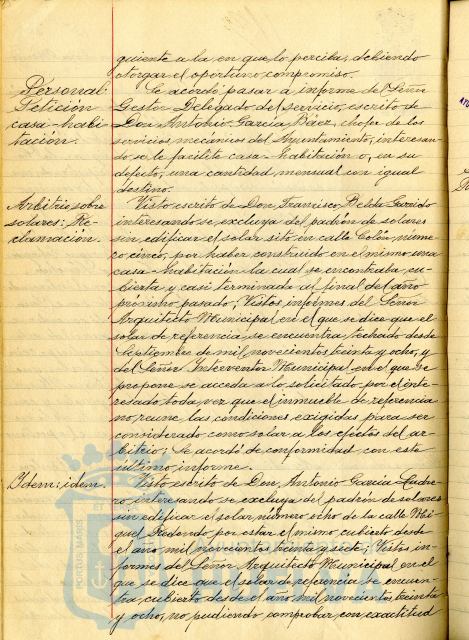 guiente a la en que lo perciba, debiendo
otorgar el oportuno compromiso.
Personal:
Petición
casa-habi-
tación.
Se acordó pasar a informe del Señor
Gestor Delegado del servicio, escrito de
Don Antonio García Báez, chofer de los
servicios mecánicos del Ayuntamiento, interesan-
do se le facilite casa-habitación o, en su
defecto, una cantidad mensual con igual
destino.
Arbitrio sobre
solares: Re-
clamación.
Visto escrito de Don Francisco Belda Garrido
interesando se excluya del padrón de solares
sin edificar el solar sito en calle Colón, núme-
ro cinco, por haber construido en el mismo una
casa-habitación la cual se encontraba, cu-
bierta y casi terminada al final del año
próximo pasado; Vistos informes del Señor
Arquitecto Municipal en el que se dice que el
solar de referencia se encuentra techado desde
Septiembre de mil novecientos treinta y ocho, y
del Señor Interventor Municipal en el que se
propone se acceda a lo solicitado por el inte-
resado toda vez que el inmueble de referencia
no reune las condiciones exigidas para ser
considerado como solar a los efectos del ar-
bitrio; Se acordó de conformidad con este
último informe.
Idem: idem.
Visto escrito de Don Antonio García
interesando se excluya del padrón de solares
sin edificar el solar número ocho de la calle Mi-
guel Redondo por estar el mismo cubierto desde
el año mil novecientos treinta y siete; Vistos in-
formes del Señor Arquitecto Municipal en el
que se dice que el solar de referencia se encuen-
tra cubierto desde el año mil novecientos treinta
y ocho, no pudiendo comprobar con exactitud
PORTUS MARIS